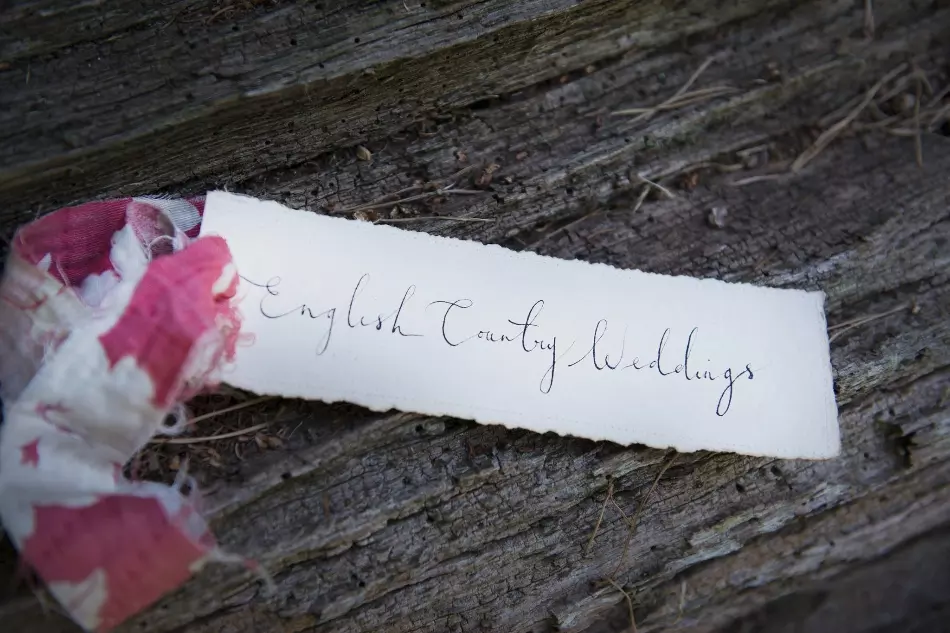 English Country Weddings